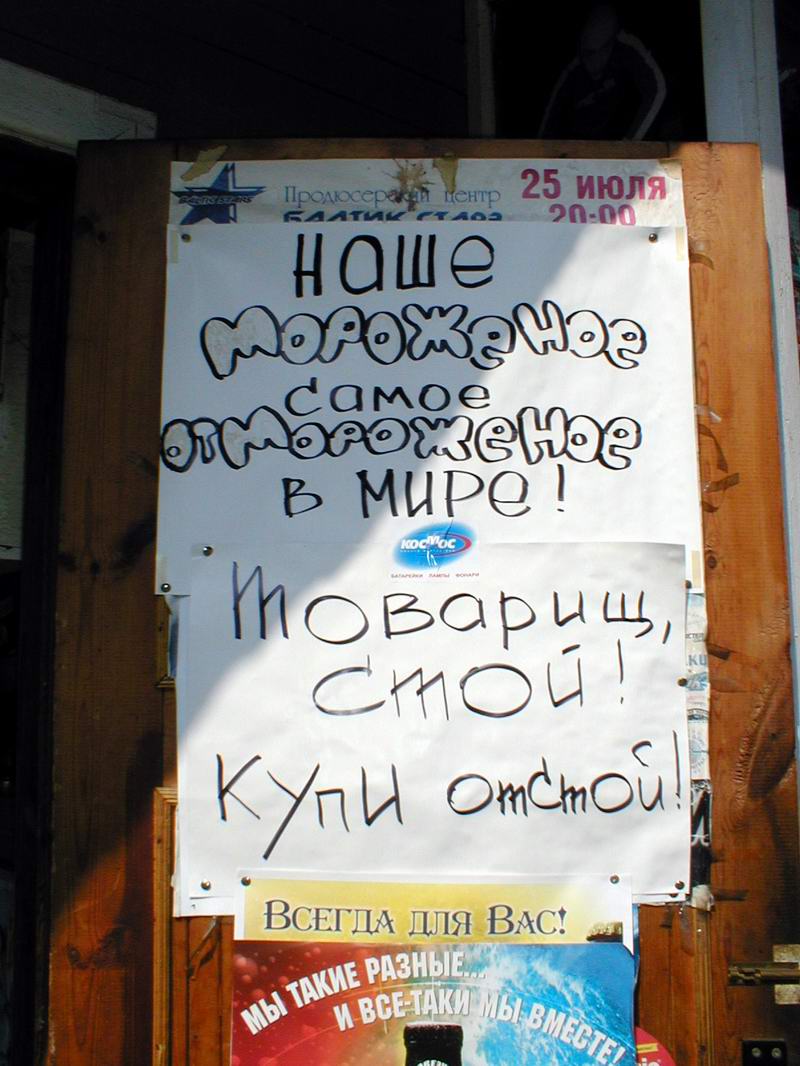 BALTIK STARS
Продюсерский центр
БАЛТИК СТАРЗ
25 ИЮЛЯ
20:00
НАШЕ
МОРОЖЕНОЕ
САМОЕ
ОТМОРОЖЕНОЕ
В МИРЕ!
КОСМОС
БАТАРЕЙКИ ЛАМПЫ ФОНАРИ
Товарищ,
стой!
Купи отстой!
Всегда для Вас!
МЫ ТАКИЕ РАЗНЫЕ...
И ВСЕ-ТАКИ МЫ ВМЕСТЕ!